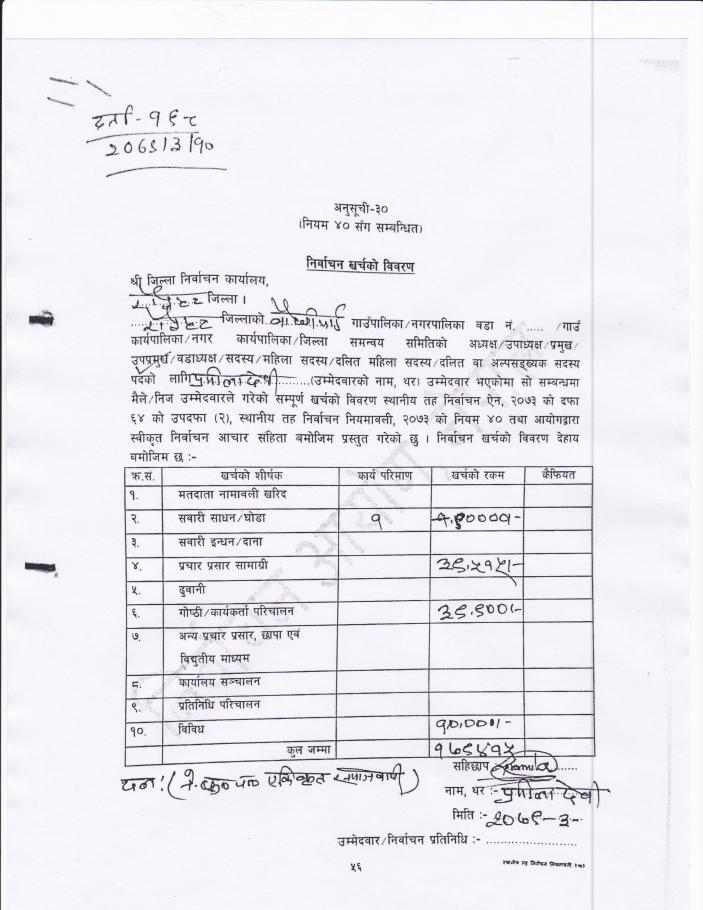 दर्ता - १६८
२०७९।३।१०
अनुसूची-३०
(नियम ४० संग सम्बन्धित)
निर्वाचन खर्चको विवरण
श्री जिल्ला निर्वाचन कार्यालय,
जिल्ला ।
जिल्लाको गाउंपालिका/नगरपालिका वडा नं. ...... /गाउं
कार्यपालिका/नगर कार्यपालिका/जिल्ला समन्वय समितिको अध्यक्ष/उपाध्यक्ष/प्रमुख/
उपप्रमुख/वडाध्यक्ष/सदस्य/महिला सदस्य/दलित महिला सदस्य/दलित वा अल्पसङ्ख्यक सदस्य
पदको लागि प्रमिला देवी..........(उम्मेदवारको नाम, थर) उम्मेदवार भएकोमा सो सम्बन्धमा
मैले/निज उम्मेदवारले गरेको सम्पूर्ण खर्चको विवरण स्थानीय तह निर्वाचन ऐन, २०७३ को दफा
६४ को उपदफा (२), स्थानीय तह निर्वाचन नियमावली, २०७३ को नियम ४० तथा आयोगद्वारा
स्वीकृत निर्वाचन आचार संहिता बमोजिम प्रस्तुत गरेको छु । निर्वाचन खर्चको विवरण देहाय
बमोजिम छ :-
क्र.सं. खर्चको शीर्षक कार्य परिमाण खर्चको रकम कैफियत
१. मतदाता नामावली खरिद
२. सवारी साधन/घोडा १
३. सवारी इन्धन/दाना
४. प्रचार प्रसार सामाग्री ३९,५१५।-
५. ढुवानी
६. गोष्ठी/कार्यकर्ता परिचालन ३९,९००।-
७. अन्य प्रचार प्रसार, छापा एवं
विद्युतीय माध्यम
८. कार्यालय सञ्चालन
९. प्रतिनिधि परिचालन
१०. विविध १०,०००।-
कुल जम्मा १७९४१५
सहिछाप Pramila
नाम, थर :- प्रमिला देवी
मिति :- २०७९-३-
उम्मेदवार/निर्वाचन प्रतिनिधि :- ..........................
५६
निर्वाचन आयोग, नेपाल